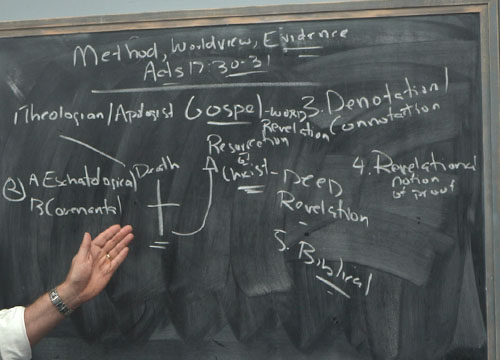 Method, Worldview, Evidence
Acts 17:30-31
1Theologian/Apologist Gospel-word Revelation
3. Denotation/
Connotation
Resurrection
of
Christ-Deed
Revelation
4. Revelational
notion
of proof
2) A Eschatological
B Covenantal
Death
5. Biblical